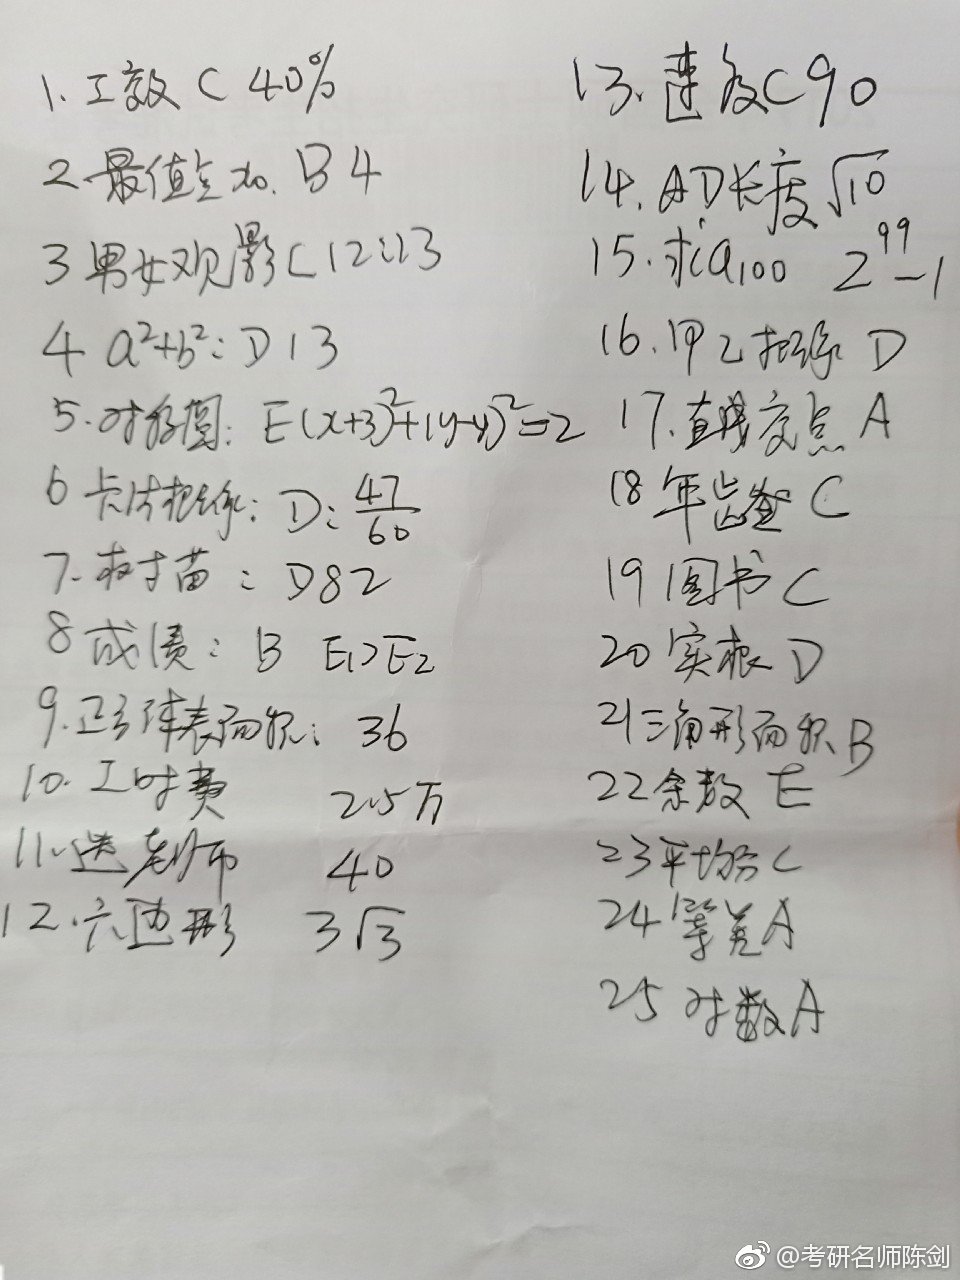 1. 工效 C 40%
2. 最值 x₀. B 4
3 男女观影 C 12:13
4 a²+b²: D 13
5. 对称圆: E (x+3)²+(y-4)²=2
6 卡片概率: D: 47/60
7. 树苗: D 82
8 成绩: B E₁>E₂
9. 正方体表面积: 36
10. 工时费 2.5万
11. 选老师 40
12. 六边形 3√3
13. 速度 C 90
14. AD长度 √10
15. 求a₁₀₀ 2⁹⁹-1
16. 甲乙概率 D
17. 直线交点 A
18 年龄 C
19 图书 C
20 实根 D
21 三角形面积 B
22 余数 E
23 平均分 C
24 等差 A
25 对数 A
@考研名师陈剑